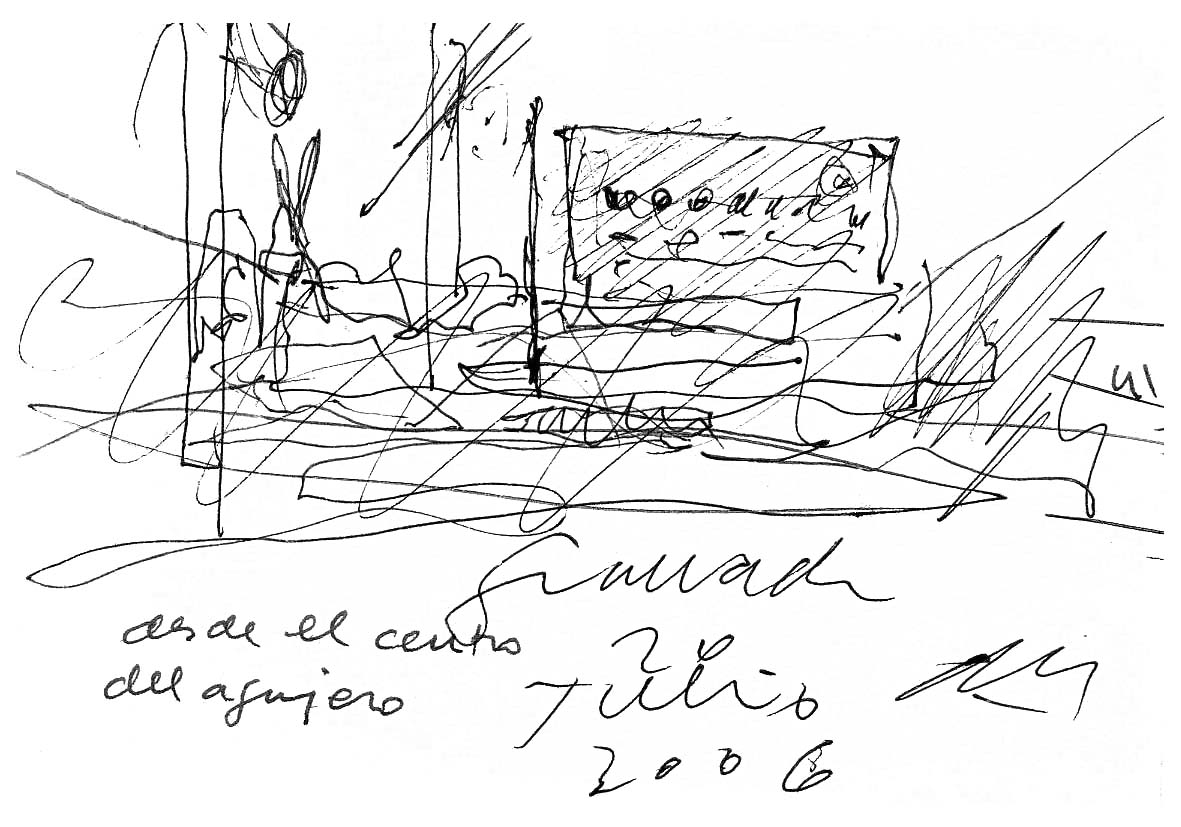 Granada
desde el centro
del agujero
20
Julio
2006